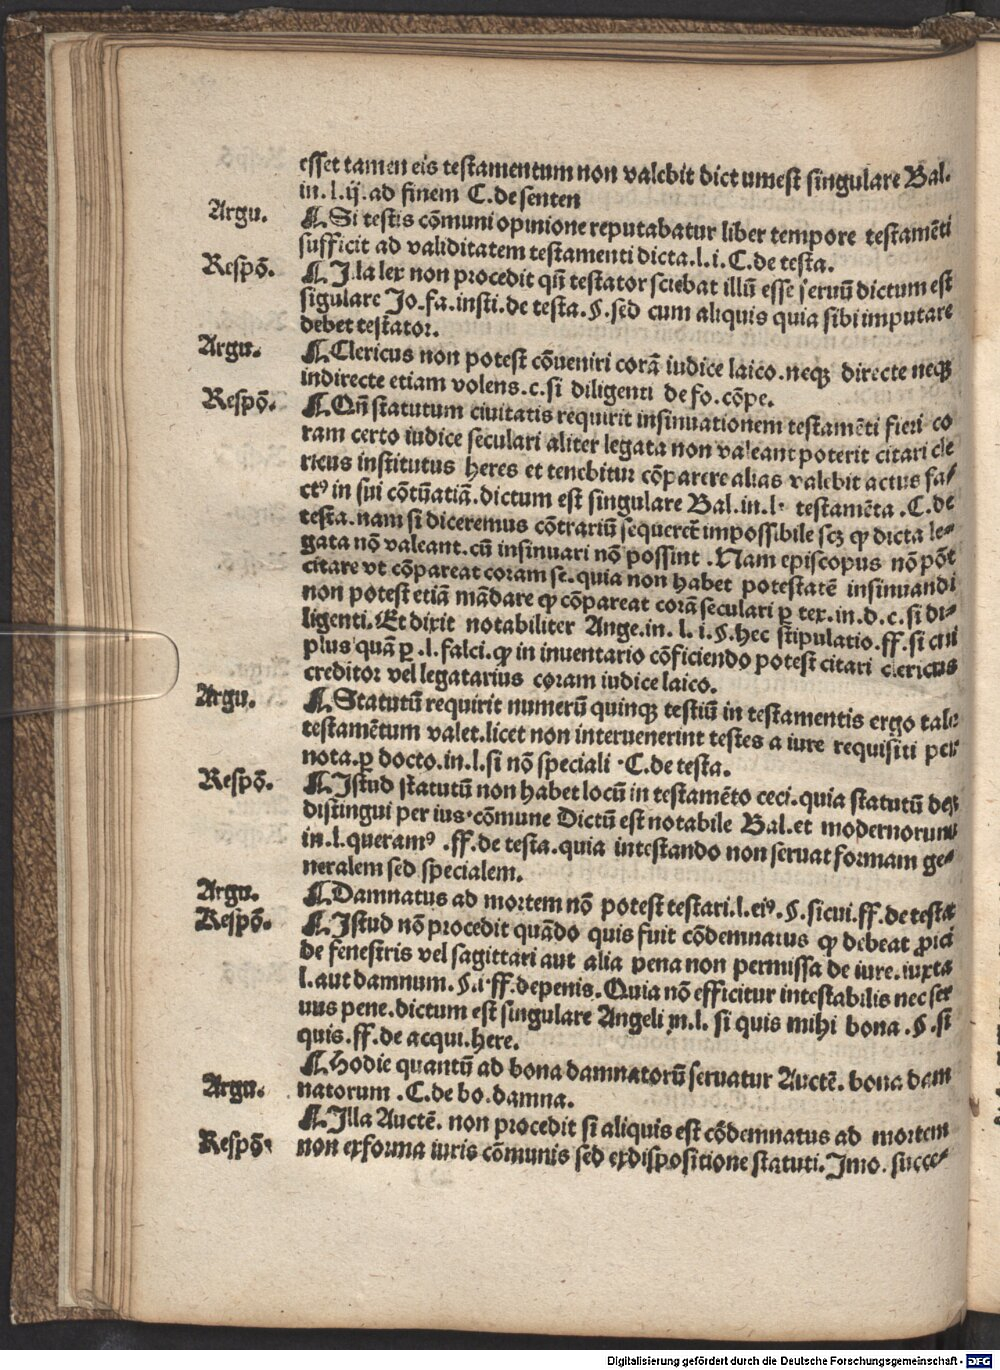 esset tamen eis testamentum non valebit dict umest singulare Bal.
in.l.ij.ad finem C.desenten
Argu. ¶Si testis cōmuni opinione reputabatur liber tempore testamēti
sufficit ad validitatem testamenti dicta.l.i.C.de testa.
Respō. ¶Illa lex non procedit qn̄ testator sciebat illū esse seruū dictum est
sigulare Jo.fa.insti.de testa.§.sed cum aliquis quia sibi imputare
debet testator.
Argu. ¶Clericus non potest cōueniri corā iudice laico.neqꝫ directe neqꝫ
indirecte etiam volens.c.si diligenti de fo.cōpe.
Respō. ¶Qn̄ statutum ciuitatis requirit insinuationem testamēti fieri co
ram certo iudice seculari aliter legata non valeant poterit citari cle
ricus institutus heres et tenebitur cōparere alias valebit actus fa/
ctꝰ in sui cōtūatiā.dictum est singulare Bal.in.l. testamēta .C.de
testa.nam si diceremus cōtrariū sequeret̄ impossibile scꝫ ꝙ dicta le⸗
gata nō valeant.cū insinuari nō possint .Nam episcopus nō pōt
citare vt cōpareat coram se.quia non habet potestatē insinuandi
non potest etiā mādare ꝙ cōpareat corā seculari ꝑ tex.in.d.c.si di⸗
ligenti.Et dixit notabiliter Ange.in. l. i.§.hec stipulatio.ff.si cui
plus quā ꝑ .l.falci.ꝙ in inuentario cōficiendo potest citari clericus
creditor vel legatarius coram iudice laico.
Argu. ¶Statutū requirit numerū quinqꝫ testiū in testamentis ergo tale
testamētum valet.licet non interuenerint testes a iure requisiti per
nota.ꝑ docto.in.l.si nō speciali .C.de testa.
Respō. ¶Istud statutū non habet locū in testamēto ceci.quia statutū deb
distingui per ius cōmune Dictū est notabile Bal.et modernorum
in.l.queramꝰ .ff.de testa.quia intestando non seruat formam ge⸗
neralem sed specialem.
Argu. ¶Damnatus ad mortem nō potest testari.l.eiꝰ.§.sicui.ff.de testa
Respō. ¶Istud nō procedit quādo quis fuit cōdemnatus ꝙ debeat ꝓici
de fenestris vel sagittari aut alia pena non permissa de iure.iuxta
l.aut damnum.§.i.ff.depenis.Quia nō efficitur intestabilis nec ser
uus pene.dictum est singulare Angeli in.l. si quis mihi bona .§.si
quis.ff.de acqui.here.
¶Hodie quantū ad bona damnatorū seruatur Auctē. bona dam
Argu. natorum .C.de bo.damna.
¶Illa Auctē. non procedit si aliquis est cōdemnatus ad mortem
Respō. non exforma iuris cōmunis sed exdispositione statuti.Imo. succe⸗
Digitalisierung gefördert durch die Deutsche Forschungsgemeinschaft - DFG